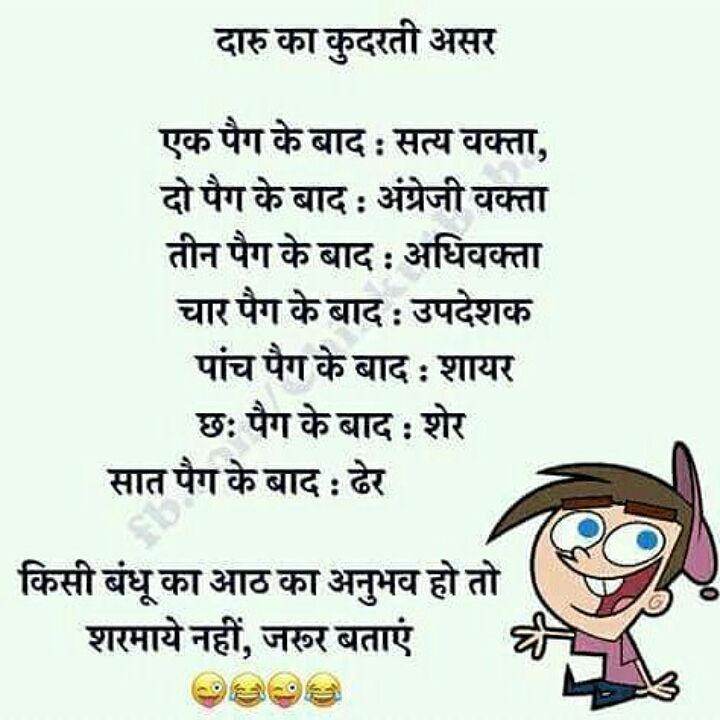 दारु का कुदरती असर
एक पैग के बाद : सत्य वक्ता,
दो पैग के बाद : अंग्रेजी वक्ता
तीन पैग के बाद : अधिवक्ता
चार पैग के बाद : उपदेशक
पांच पैग के बाद : शायर
छः पैग के बाद : शेर
सात पैग के बाद : ढेर
किसी बंधू का आठ का अनुभव हो तो
शरमाये नहीं, जरूर बताएं
😜😂😜😂